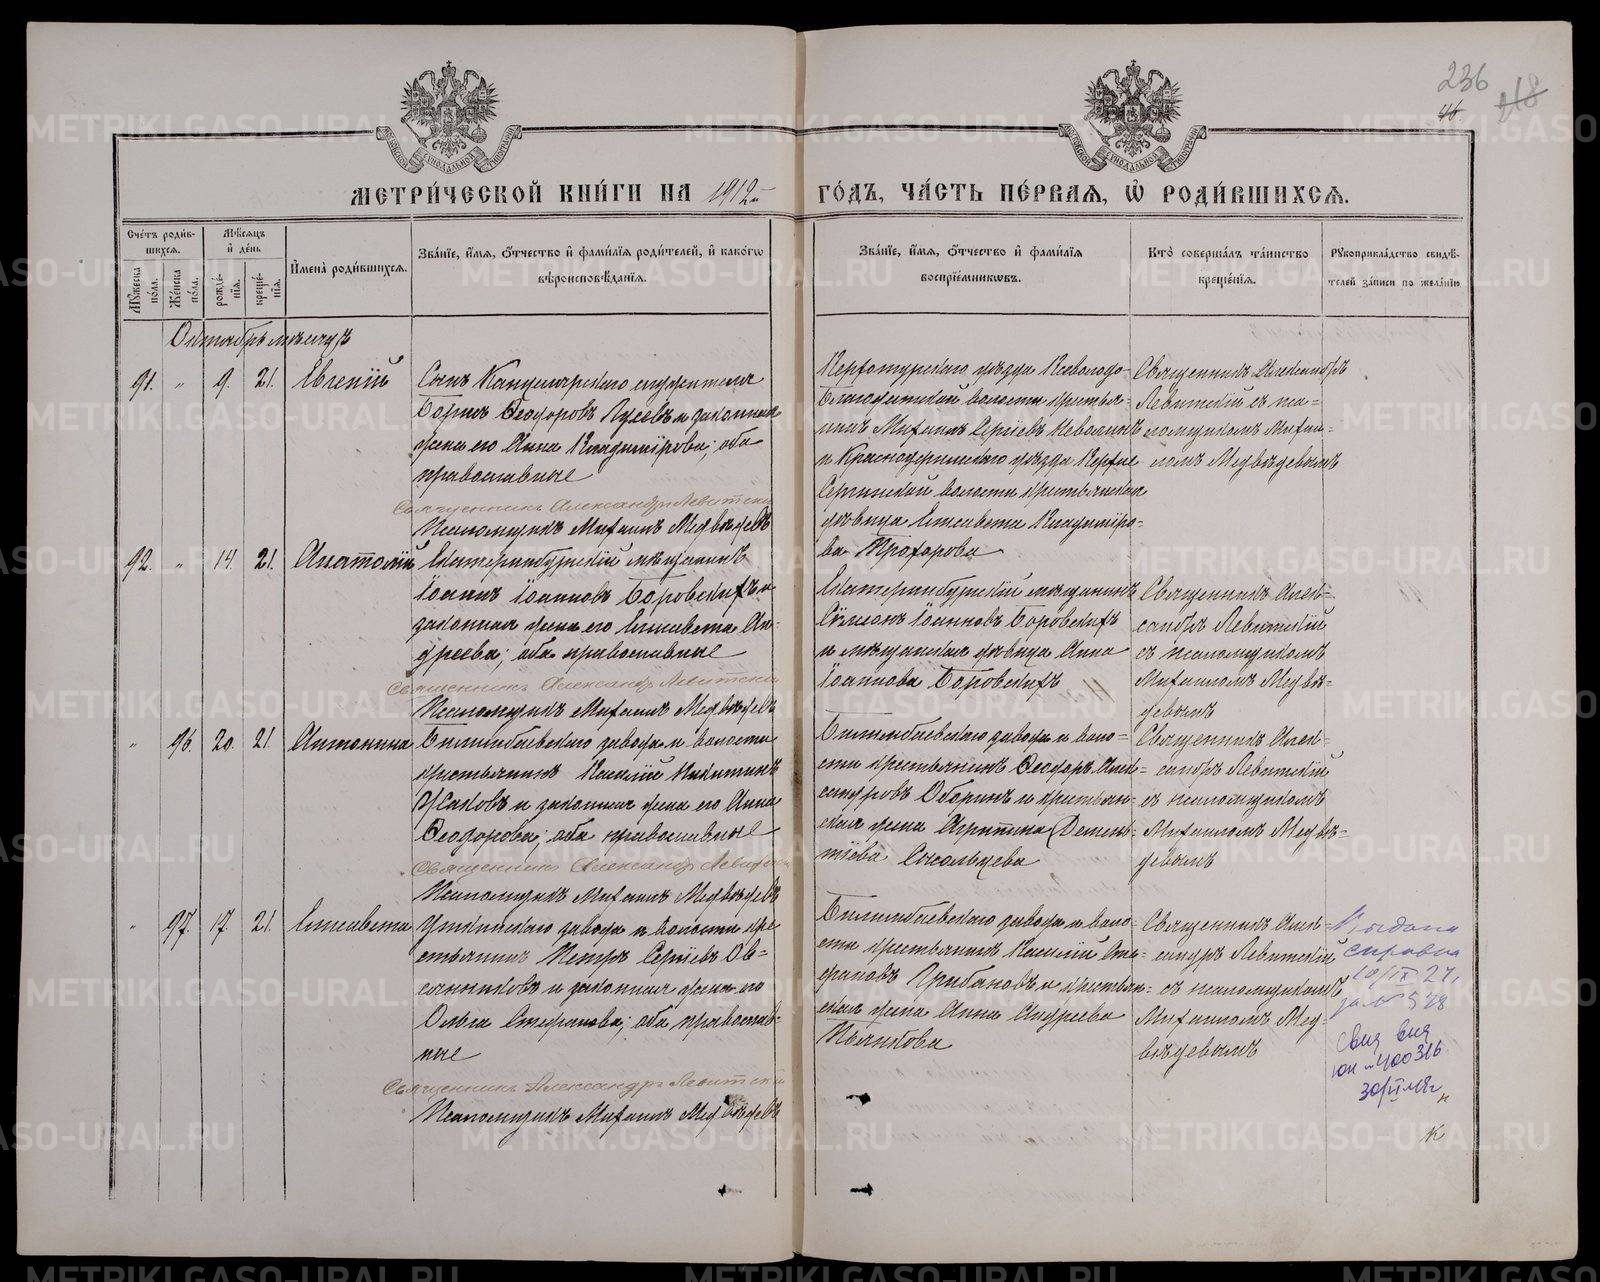 236
46.
218
МЕТРИ́ЧЕСКОЙ КНИ́ГИ НА 1912 ГО́ДЪ, ЧА́СТЬ ПЕ́РВАЯ, Ѿ РОДИ́ВШИХСЯ.
Сче́тъ роди́вшихся.
Мꙋ́жеска по́ла.
Же́нска по́ла.
Мѣ́сяцъ и де́нь
рожде́нїя.
креще́нїя.
И҆мена̀ роди́вшихся.
Зва́нїе, и҆́мя, ѻ҆́тчество и҆ фами́лїя роди́телей, и҆ како́гѡ вѣроисповѣ́данїя.
Зва́нїе, и҆́мя, ѻ҆́тчество и҆ фами́лїя воспрїе́мникѡвъ.
Кто̀ соверша́лъ та́инство креще́нїя.
Рꙋкоприкла́дство свидѣ́телей за́писи по жела́нїю
Октябрь мѣсяцъ
91. " 9. 21. Евгенiй
Сынъ Канцелярскаго служителя
Борисъ Ѳеодоровъ Гусевъ и законная
жена его Анна Владимiрова; оба
православные
Священникъ Александръ Левитскiй
Псаломщикъ Михаилъ Медвѣдевъ
Верхотурскаго уѣзда Всеволодо-
Благодатской волости крестья-
нинъ Михаилъ Сергiевъ Неволинъ
и Красноуфимскаго уѣзда Верхне
Сергинской волости крестьянская
дѣвица Елисавета Владимiро-
ва Прохорова
Священникъ Александръ
Левитскiй съ пса-
ломщикомъ Михаи-
ломъ Медвѣдевымъ
92. " 14. 21. Анатолiй
Екатеринбургскiй мѣщанинъ
Iоаннъ Iоанновъ Боровскихъ и
законная жена его Елисавета Ан-
дреева; оба православные
Священникъ Александръ Левитскiй
Псаломщикъ Михаилъ Медвѣдевъ
Екатеринбургскiй мѣщанинъ
Сѵмеонъ Iоанновъ Боровскихъ
и мѣщанская дѣвица Анна
Iоаннова Боровскихъ
Священникъ Алек-
сандръ Левитскiй
съ псаломщикомъ
Михаиломъ Медвѣ-
девымъ
" 96. 20. 21. Антонина
Билимбаевскаго завода и волости
крестьянинъ Василiй Никитинъ
Жаковъ и законная жена его Анна
Ѳеодорова; оба православные
Священникъ Александръ Левитскiй
Псаломщикъ Михаилъ Медвѣдевъ
Билимбаевскаго завода и воло-
сти крестьянинъ Ѳеодоръ Алек-
сандровъ Оборинъ и крестьян-
ская жена Агриппина Демен-
тiева Сокольцева
Священникъ Алек-
сандръ Левитскiй
съ псаломщикомъ
Михаиломъ Медвѣ-
девымъ
" 97. 17. 21. Елисавета
Уткинскаго завода и волости кре-
стьянинъ Петръ Сергiевъ Ов-
сянниковъ и законная жена его
Ольга Стефанова; оба православ-
ные
Священникъ Александръ Левитскiй
Псаломщикъ Михаилъ Медвѣдевъ
Билимбаевскаго завода и воло-
сти крестьянинъ Василiй Сте-
фановъ Грибановъ и крестьян-
ская жена Анна Андреева
Пьянкова
Священникъ Алек-
сандръ Левитскiй
съ псаломщикомъ
Михаиломъ Мед-
вѣдевымъ
Выдана
справка
10/IX 27г.
за № 528
METRIKI.GASO-URAL.RU